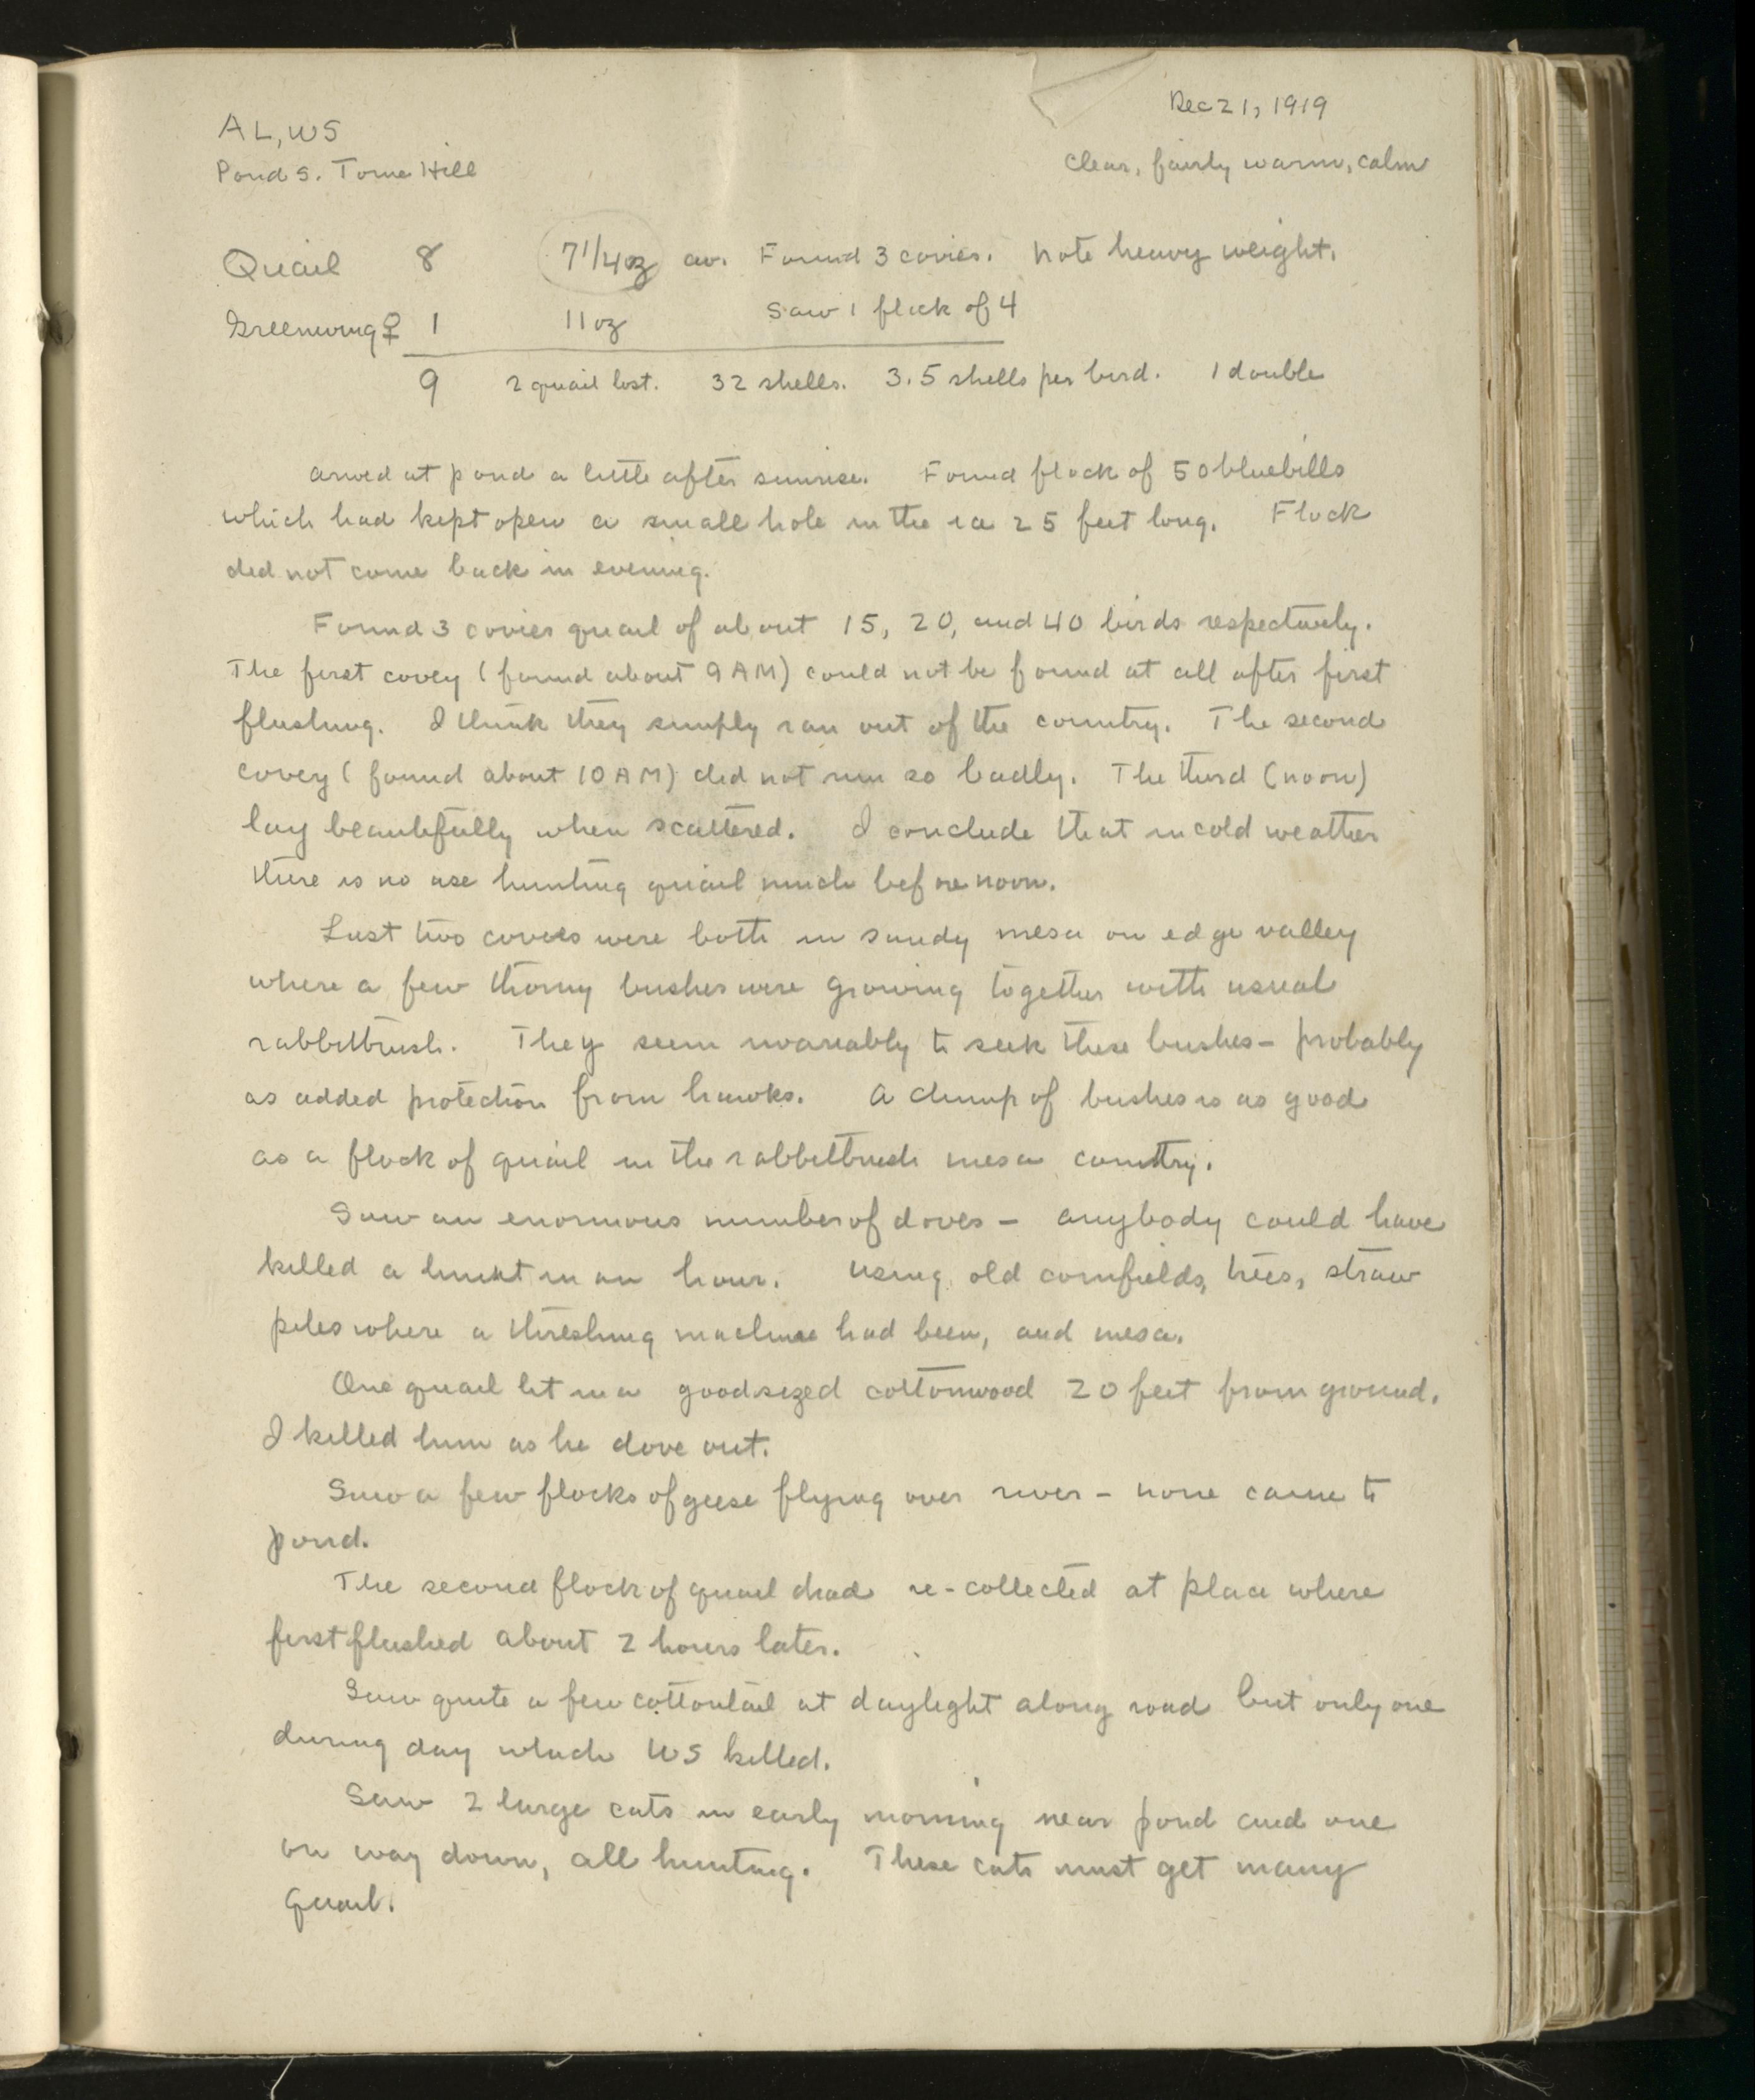 AL, WS
Dec 21, 1919
Pond S. Tome Hill
Clear, fairly warm, calm
Quail 8 7 1/4 oz av. Found 3 covies. Note heavy weight.
Greenwing ♀ 1 11 oz Saw 1 flock of 4
9 2 quail lost. 32 shells. 3.5 shells per bird. 1 double
Arived at pond a little after sunrise. Found flock of 50 bluebills
which had kept open a small hole in the ice 25 feet long. Flock
did not come back in evening.
Found 3 covies quail of about 15, 20, and 40 birds respectively.
The first covey (found about 9 AM) could not be found at all after first
flushing. I think they simply ran out of the country. The second
covey (found about 10 AM) did not run so badly. The third (noon)
lay beautifully when scattered. I conclude that in cold weather
there is no use hunting quail much before noon.
Last two covies were both in sandy mesa on edge valley
where a few thorny bushes were growing together with usual
rabbitbrush. They seem invariably to seek these bushes - probably
as added protection from hawks. A clump of bushes is as good
as a flock of quail in the rabbitbrush mesa country.
Saw an enormous number of doves - anybody could have
killed a limit in an hour. Using old cornfields, trees, straw
piles where a threshing machine had been, and mesa.
One quail lit in a goodsized cottonwood 20 feet from ground.
I killed him as he dove out.
Saw a few flocks of geese flying over river - none came to
pond.
The second flock of quail had re-collected at place where
first flushed about 2 hours later.
Saw quite a few cottontail at daylight along road but only one
during day which WS killed.
Saw 2 large cats in early morning near pond and one
on way down, all hunting. These cats must get many
quail.